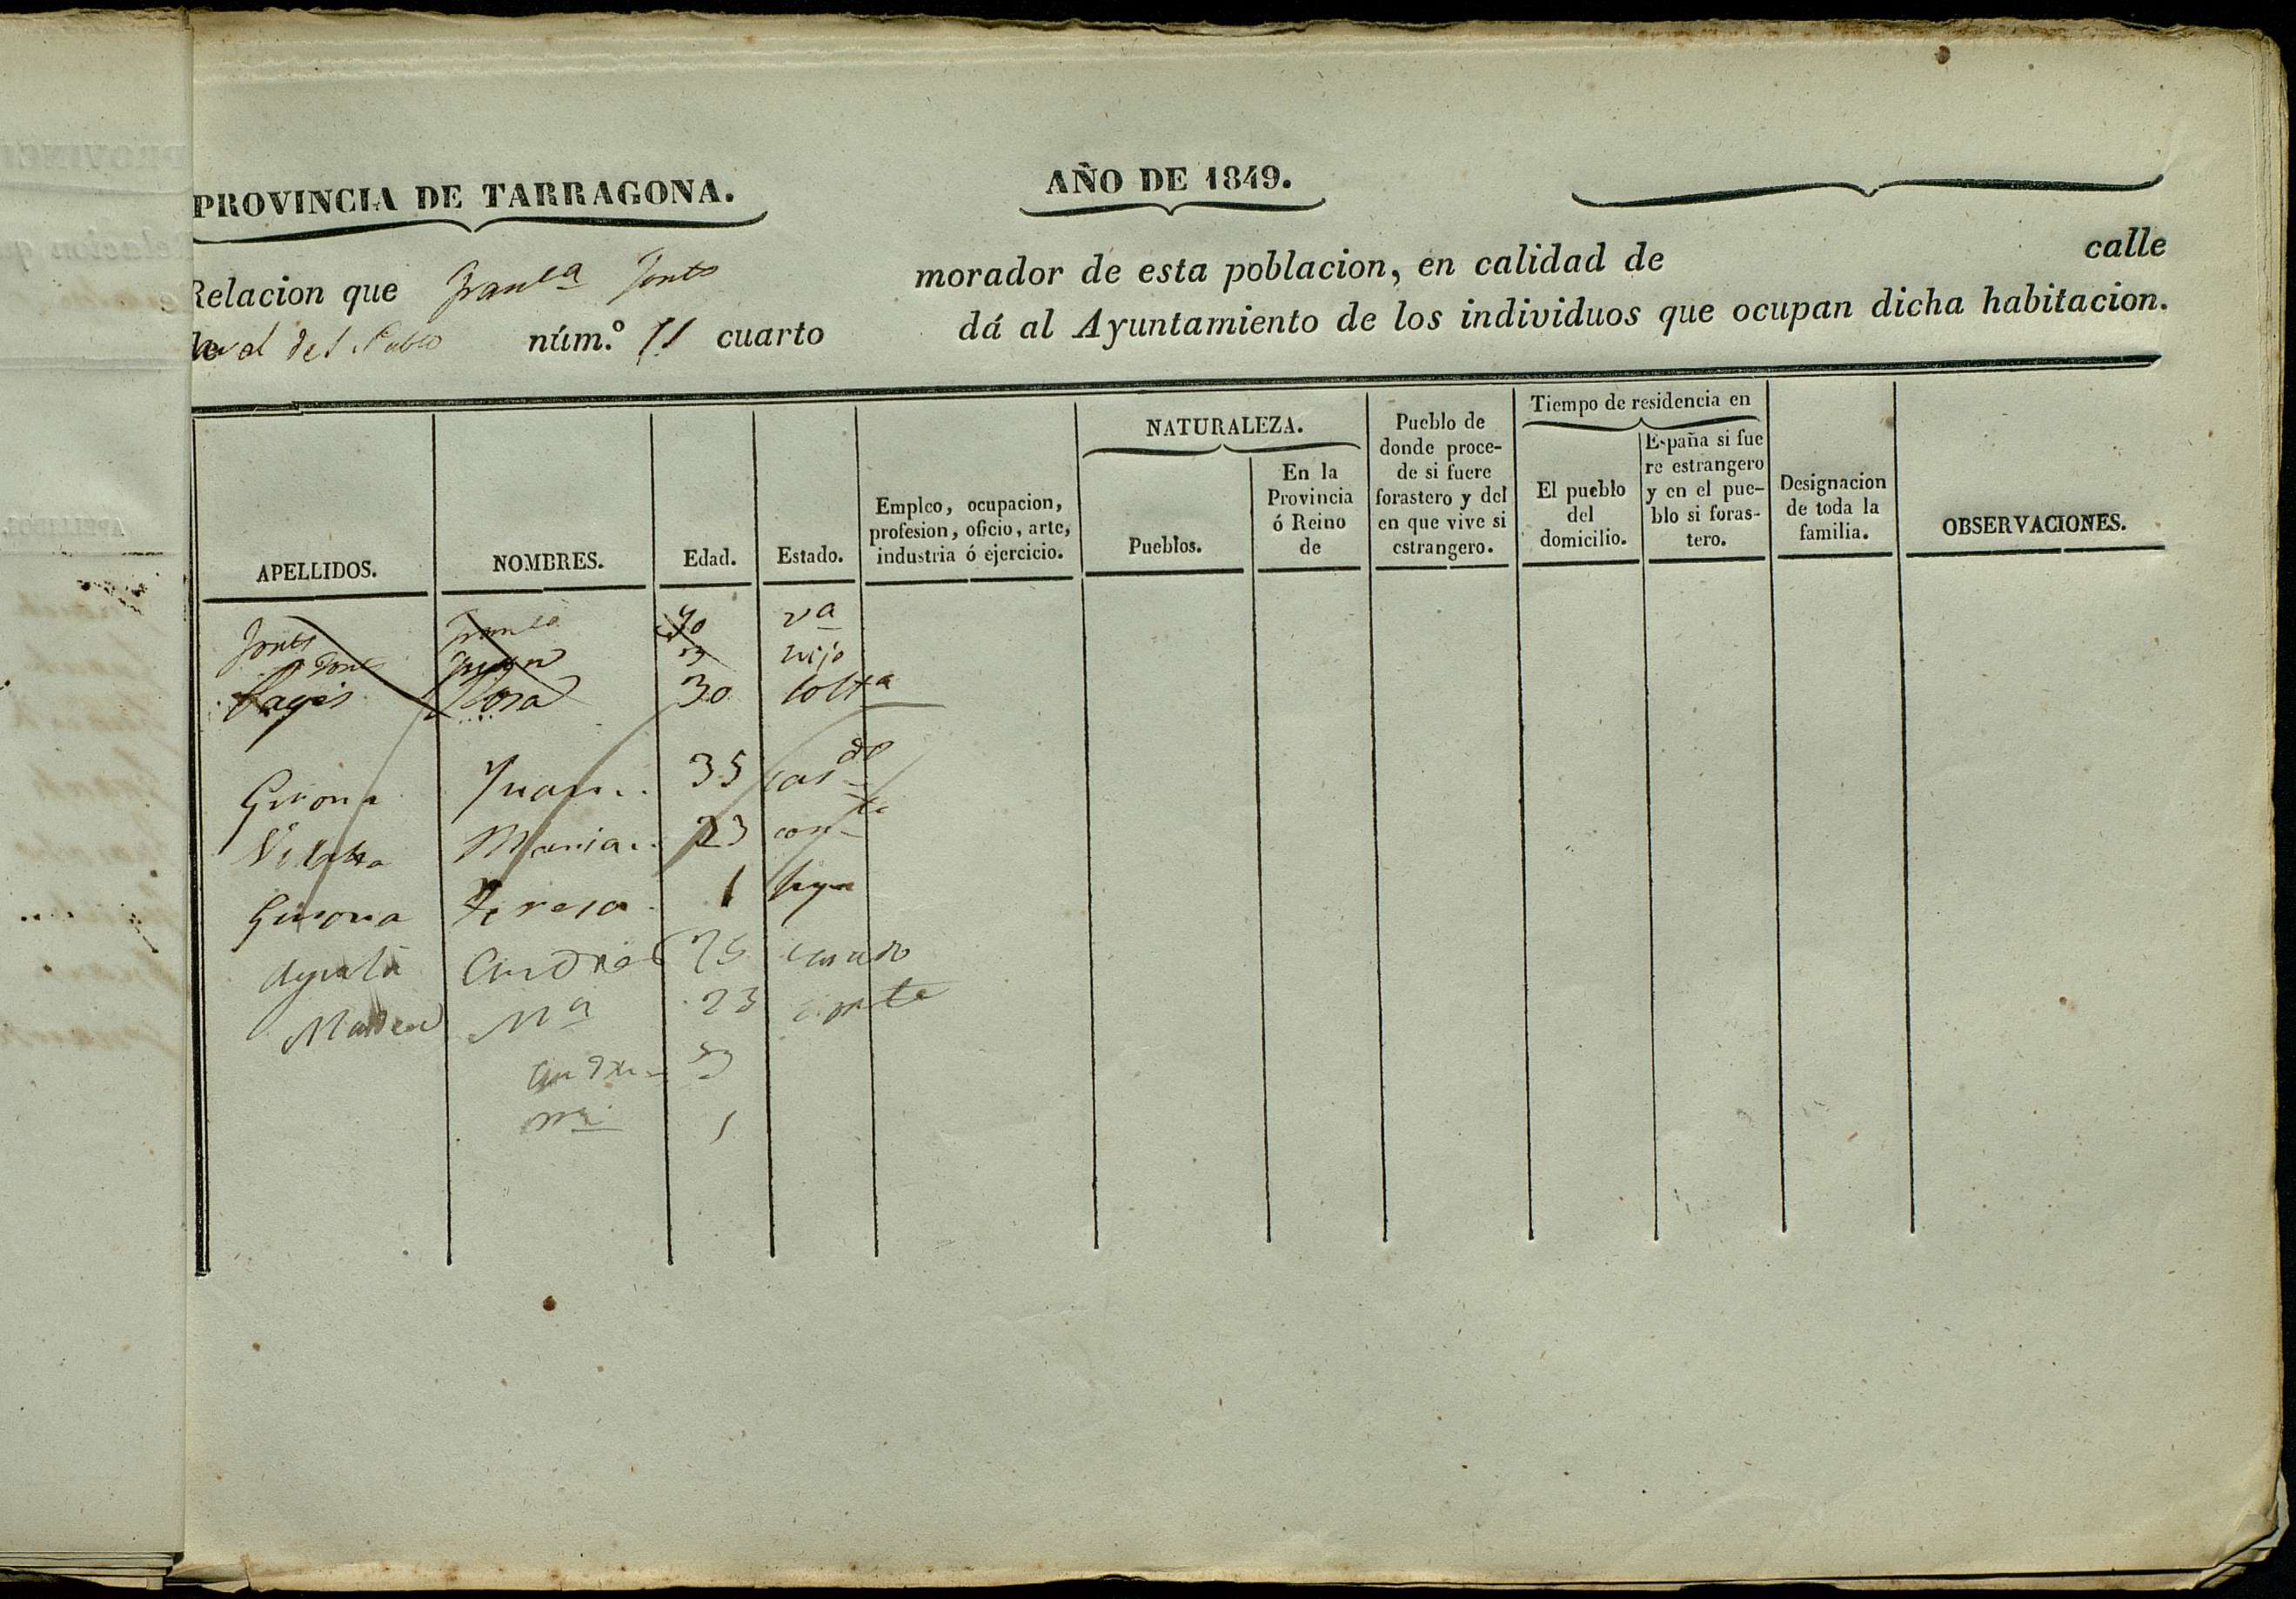 PROVINCIA DE TARRAGONA.
AÑO DE 1849.
Relacion que Franca Fonts morador de esta poblacion, en calidad de calle
núm.º 11 cuarto dá al Ayuntamiento de los individuos que ocupan dicha habitacion.
APELLIDOS.
NOMBRES.
Edad.
Estado.
Empleo, ocupacion,
profesion, oficio, arte,
industria ó ejercicio.
NATURALEZA.
Pueblos.
En la
Provincia
ó Reino
de
Pueblo de
donde proce-
de si fuere
forastero y del
en que vive si
estrangero.
Tiempo de residencia en
El pueblo
del
domicilio.
España si fue
re estrangero
y en el pue-
blo si foras-
tero.
Designacion
de toda la
familia.
OBSERVACIONES.
Fonts Franca va
Juan hijo
Pagés Rosa 30 solta
Girona Juan 35 casdo
Maria 23 conte
Girona Teresa 1 hija
Agustá Andres 25 casado
Mª 23 conte
Andres 3
Mª 1